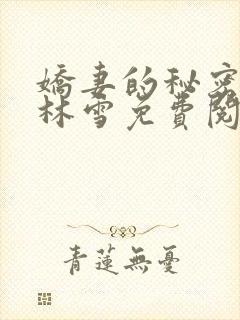 嬌妻的秘密
林雪免費閱
青蓮無憂